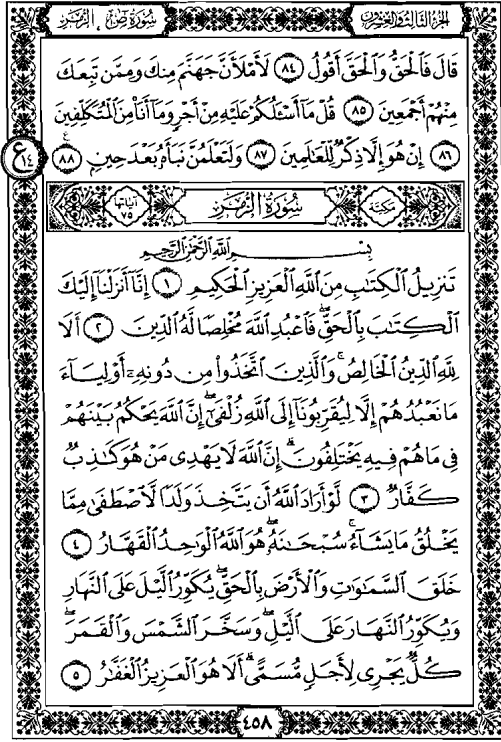 الجزء الثالث والعشرون
سورة ص ، الزمر
قَالَ فَٱلْحَقُّ وَٱلْحَقَّ أَقُولُ ٨٤ لَأَمْلَأَنَّ جَهَنَّمَ مِنكَ وَمِمَّن تَبِعَكَ
مِنْهُمْ أَجْمَعِينَ ٨٥ قُلْ مَآ أَسْـَٔلُكُمْ عَلَيْهِ مِنْ أَجْرٍ وَمَآ أَنَا۠ مِنَ ٱلْمُتَكَلِّفِينَ
٨٦ إِنْ هُوَ إِلَّا ذِكْرٌ لِّلْعَٰلَمِينَ ٨٧ وَلَتَعْلَمُنَّ نَبَأَهُۥ بَعْدَ حِينٍۭ ٨٨
ع ١٤
مكية
سورة الزمر
آياتها ٧٥
بِسْمِ ٱللَّهِ ٱلرَّحْمَٰنِ ٱلرَّحِيمِ
تَنزِيلُ ٱلْكِتَٰبِ مِنَ ٱللَّهِ ٱلْعَزِيزِ ٱلْحَكِيمِ ١ إِنَّآ أَنزَلْنَآ إِلَيْكَ
ٱلْكِتَٰبَ بِٱلْحَقِّ فَٱعْبُدِ ٱللَّهَ مُخْلِصًا لَّهُ ٱلدِّينَ ٢ أَلَا
لِلَّهِ ٱلدِّينُ ٱلْخَالِصُ ۚ وَٱلَّذِينَ ٱتَّخَذُوا۟ مِن دُونِهِۦٓ أَوْلِيَآءَ
مَا نَعْبُدُهُمْ إِلَّا لِيُقَرِّبُونَآ إِلَى ٱللَّهِ زُلْفَىٰٓ ۖ إِنَّ ٱللَّهَ يَحْكُمُ بَيْنَهُمْ
فِى مَا هُمْ فِيهِ يَخْتَلِفُونَ ۗ إِنَّ ٱللَّهَ لَا يَهْدِى مَنْ هُوَ كَٰذِبٌ
كَفَّارٌ ٣ لَّوْ أَرَادَ ٱللَّهُ أَن يَتَّخِذَ وَلَدًا لَّٱصْطَفَىٰ مِمَّا
يَخْلُقُ مَا يَشَآءُ ۚ سُبْحَٰنَهُۥ ۖ هُوَ ٱللَّهُ ٱلْوَٰحِدُ ٱلْقَهَّارُ ٤
خَلَقَ ٱلسَّمَٰوَٰتِ وَٱلْأَرْضَ بِٱلْحَقِّ ۖ يُكَوِّرُ ٱلَّيْلَ عَلَى ٱلنَّهَارِ
وَيُكَوِّرُ ٱلنَّهَارَ عَلَى ٱلَّيْلِ ۖ وَسَخَّرَ ٱلشَّمْسَ وَٱلْقَمَرَ ۖ
كُلٌّ يَجْرِى لِأَجَلٍ مُّسَمًّى ۗ أَلَا هُوَ ٱلْعَزِيزُ ٱلْغَفَّٰرُ ٥
٤٥٨